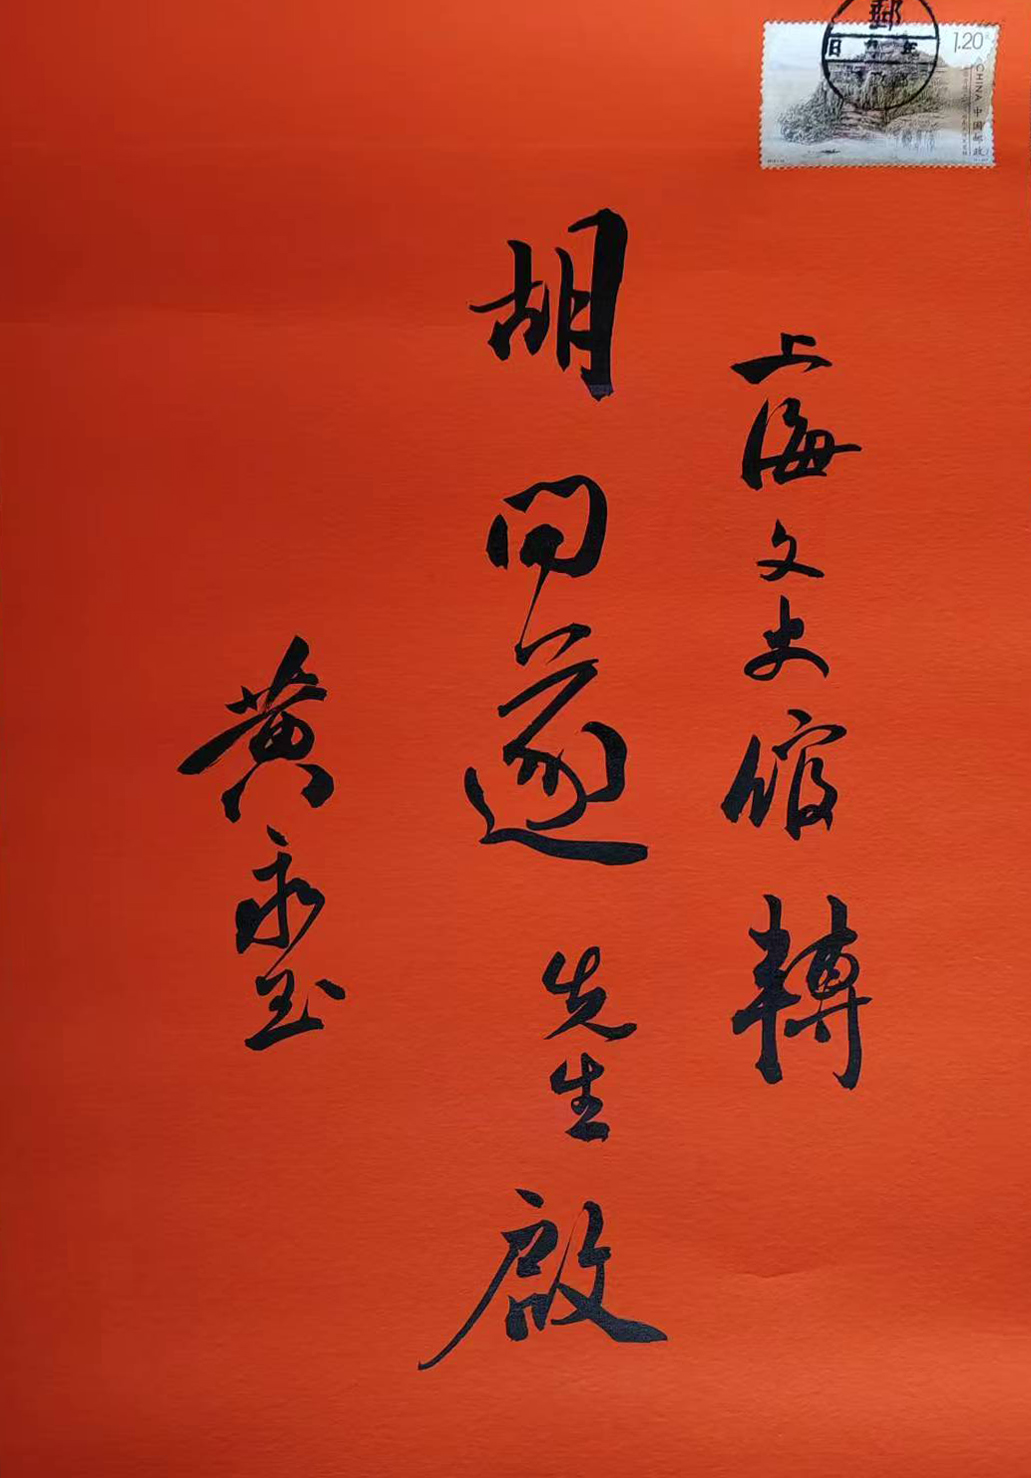 上海文史館轉
胡问遂先生啟
黄永玉
郵
日 年
1.20
CHINA 中国邮政